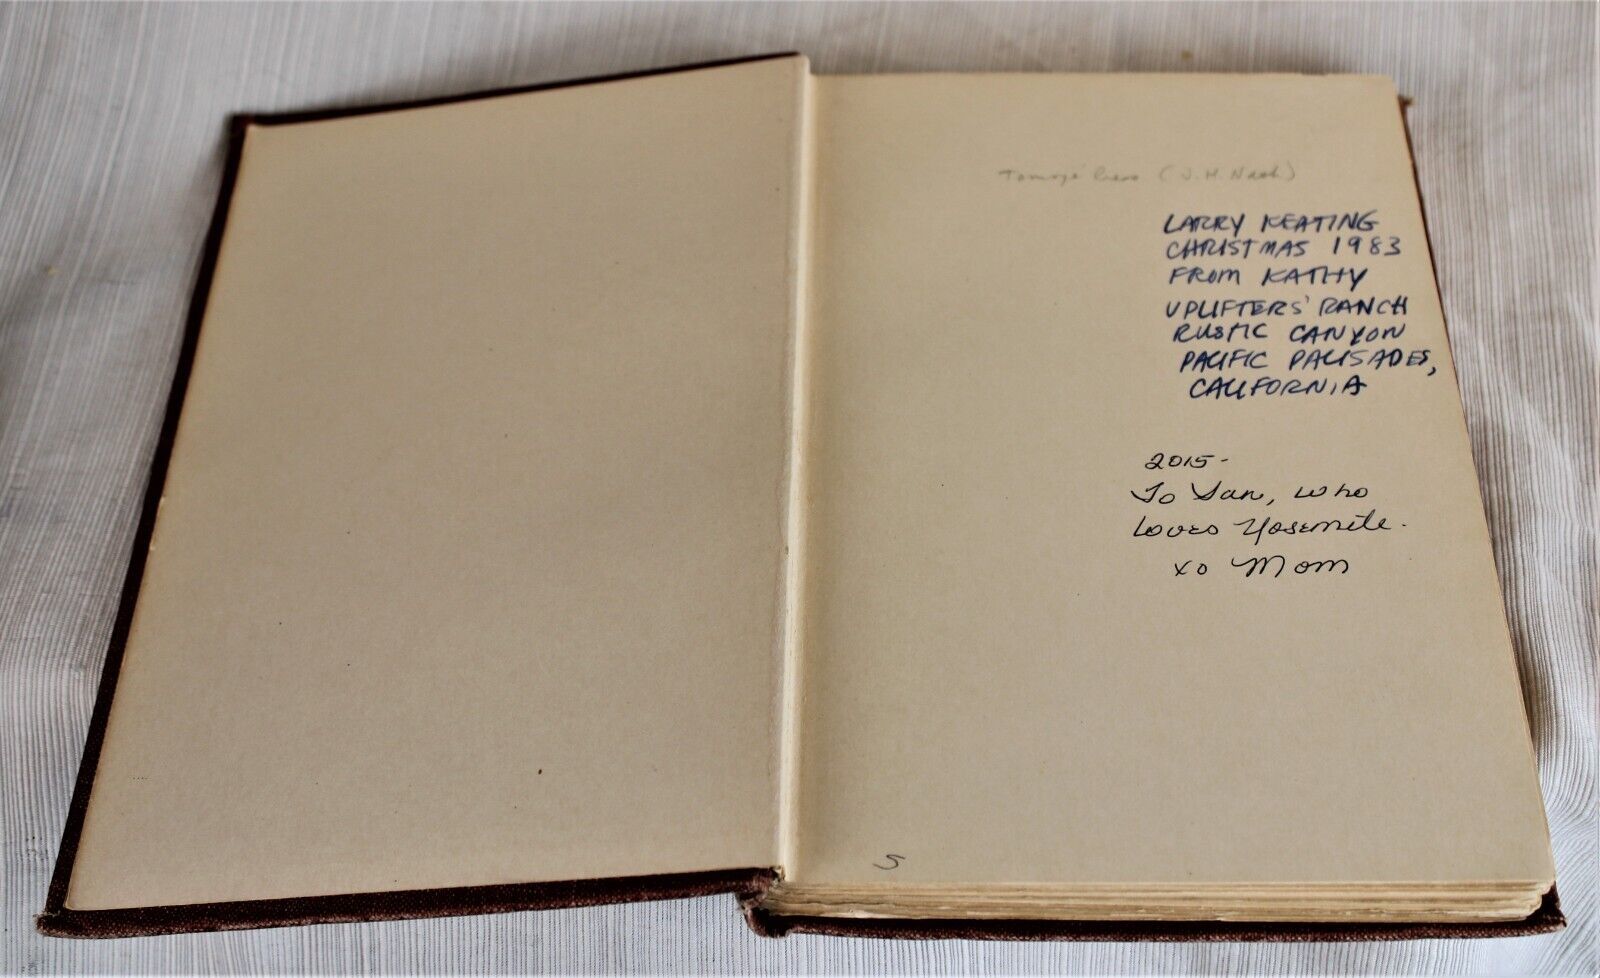 Tomoyé Press (J. H. Nash)
LARRY KEATING
CHRISTMAS 1983
FROM KATHY
UPLIFTERS' RANCH
RUSTIC CANYON
PACIFIC PALISADES,
CALIFORNIA
2015-
To Ian, who
loves Yosemite.
xo Mom
S